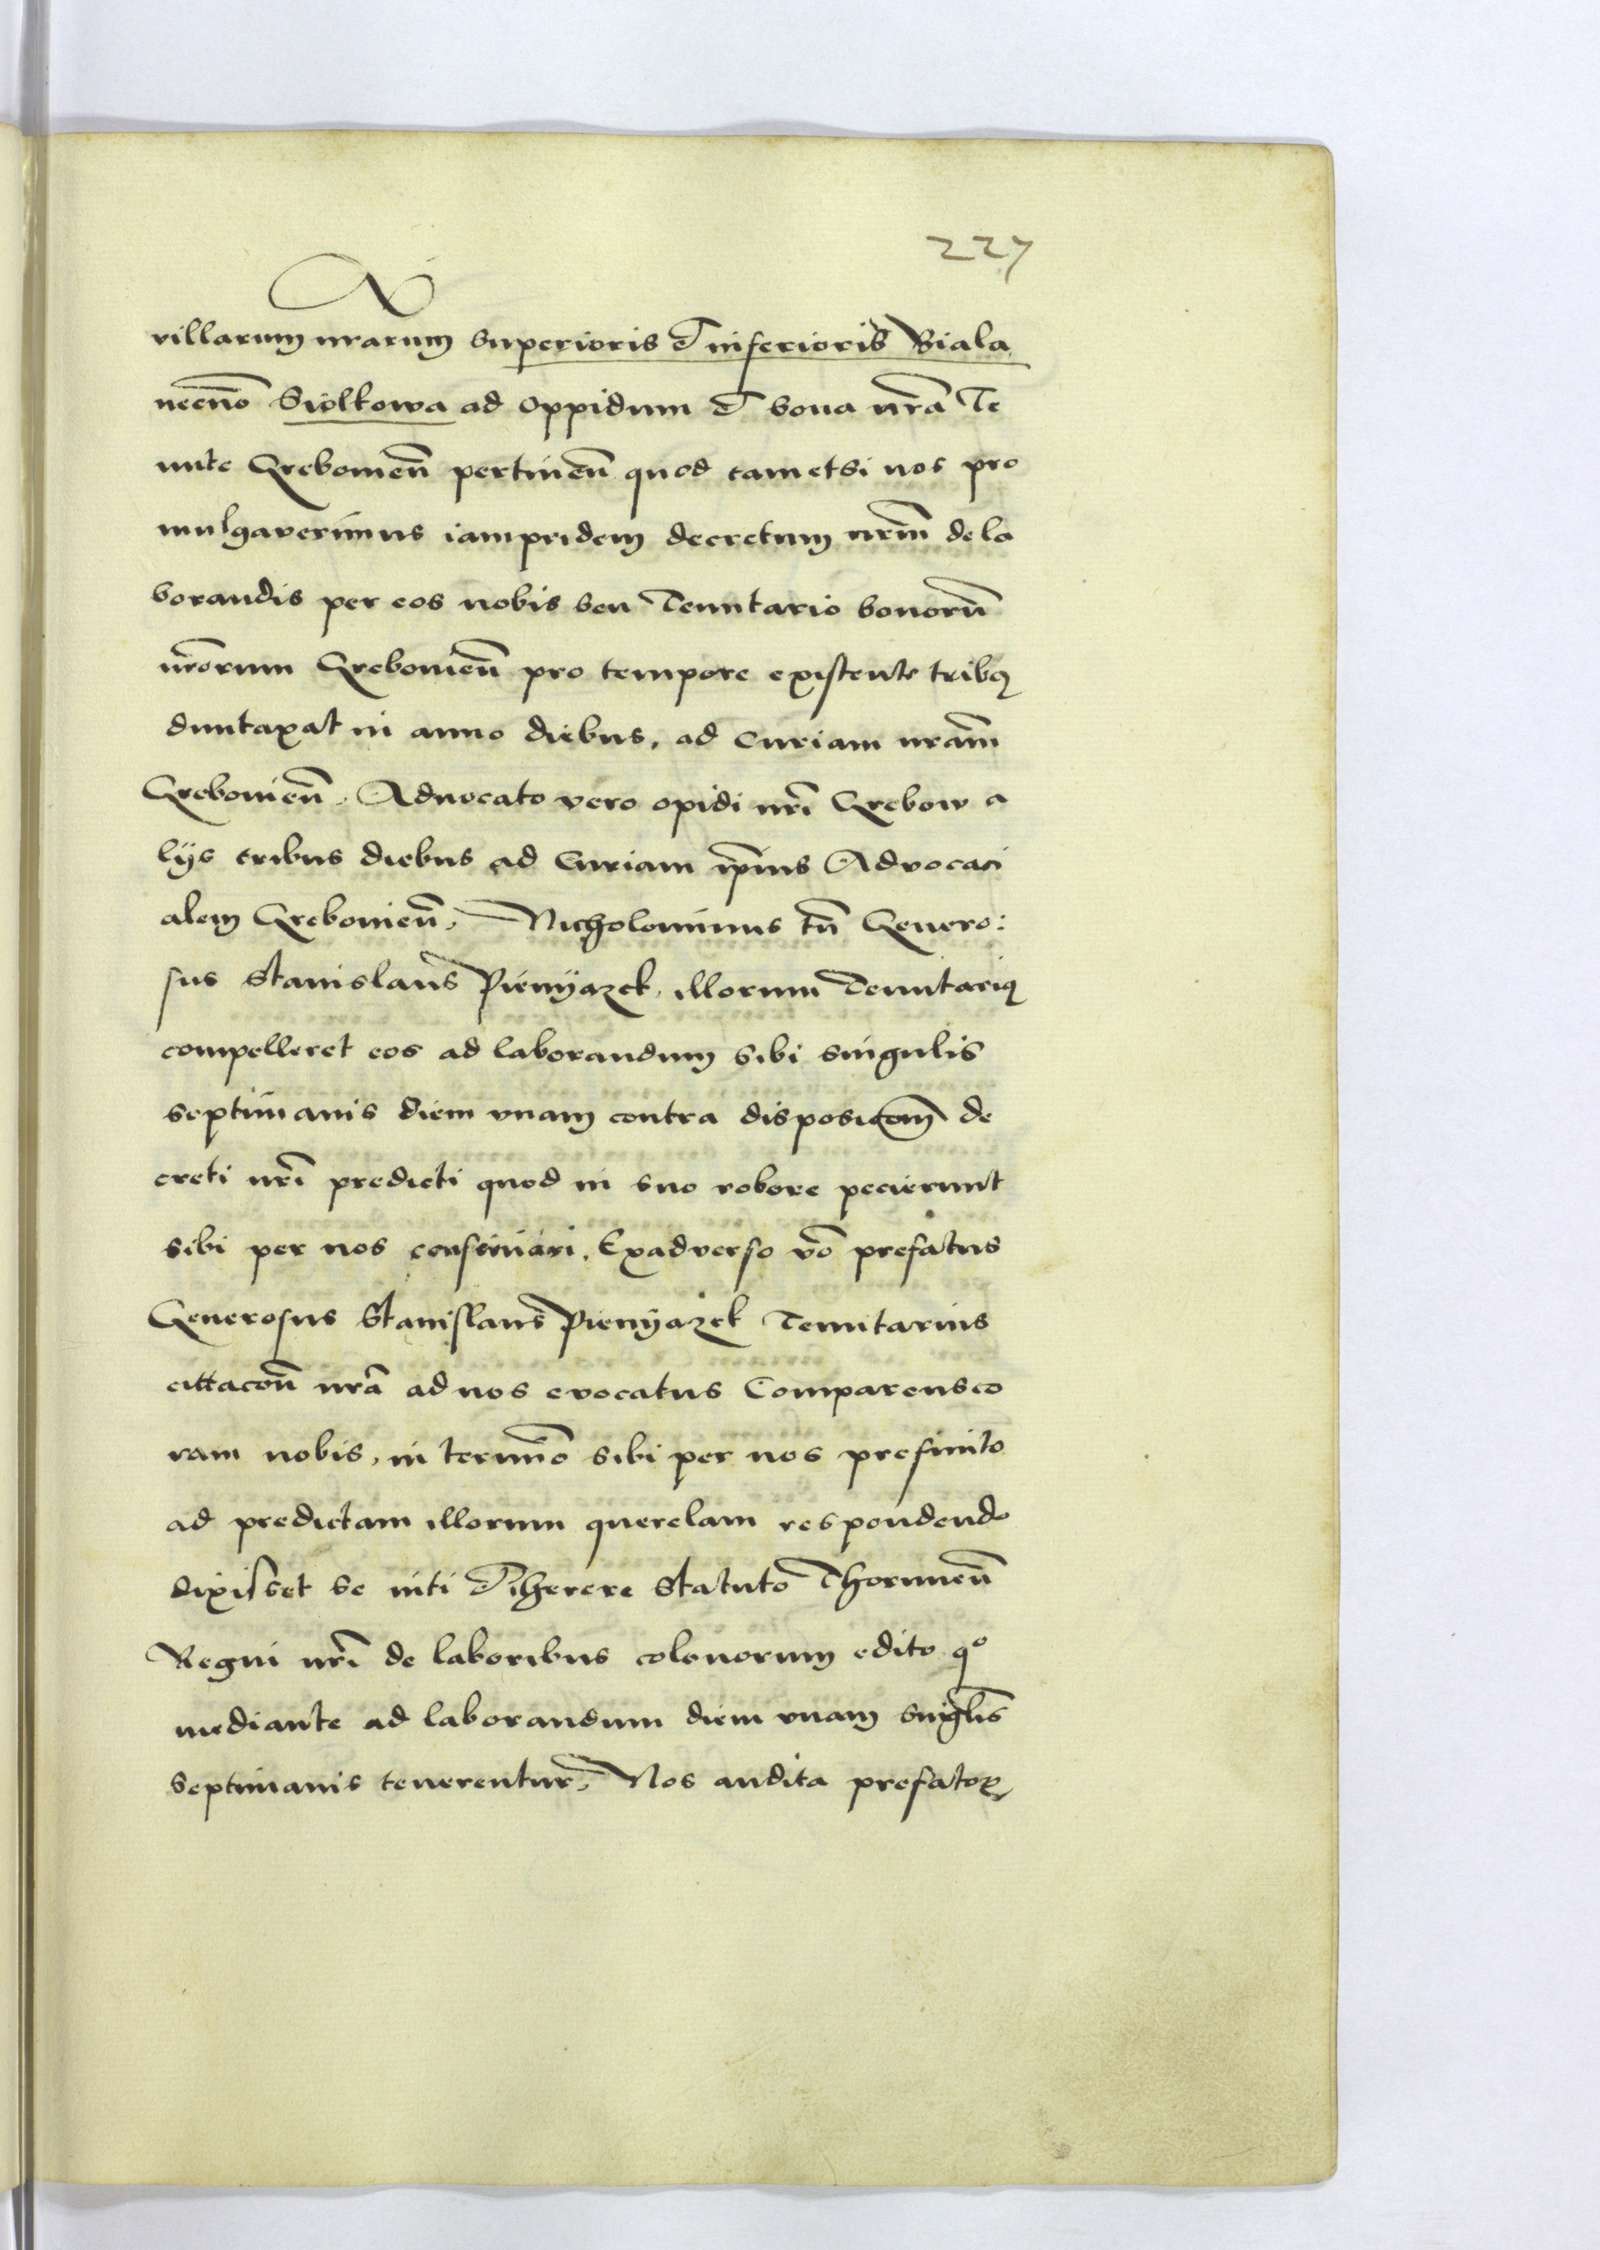 227
villarum nrarum superioris et inferioris Biala
necno Siolkowa ad oppidum et bona nra Te
nute Grebonien pertinen quod tametsi nos pro
mulgaverimus iampridem decretum nrm de la
borandis per eos nobis seu Tenutario bonoru
nrorum Grebonien pro tempore existente tribq
duntaxat in anno diebus, ad curiam nram
Grebonien, Aduocato vero opidi nri Grebow a
lijs tribus diebus ad Curiam ipius Advocaci
alem Grebonien, Nicholominus tn Genero:
sus Stanislaus Pienÿazek, illorum Tenutariq
compelleret eos ad laborandum sibi singulis
septimanis diem vnam contra disposicom de
creti nri predicti quod in suo robore pecierunt
sibi per nos conservari. Exadverso vo prefatus
Generosus Stanislaus Pienÿazek Tenutarius
cittacon nra ad nos evocatus Comparens co
ram nobis, in termio sibi per nos prefinito
ad predictam illorum querelam respondendo
dixisset se niti et iherere Statuto Thorunien
Regni nri de laboribus colonorum edito qo
mediante ad laborandum diem vnam singlis
septimanis tenerentur, Nos audita prefator